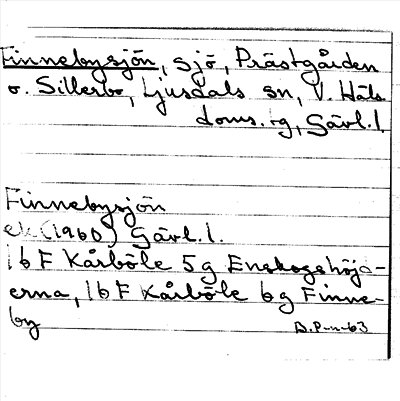 Finnebysjön, sjö, Prästgården
o. Sillerbo, Ljusdals sn, V. Häls
doms. tg, Gävl.l.
Finnebysjön
ek (1960) Gävl.l.
16 F Kårböle 5g Enskogshöjd-
erna, 16 F Kårböle 6g Finne-
by